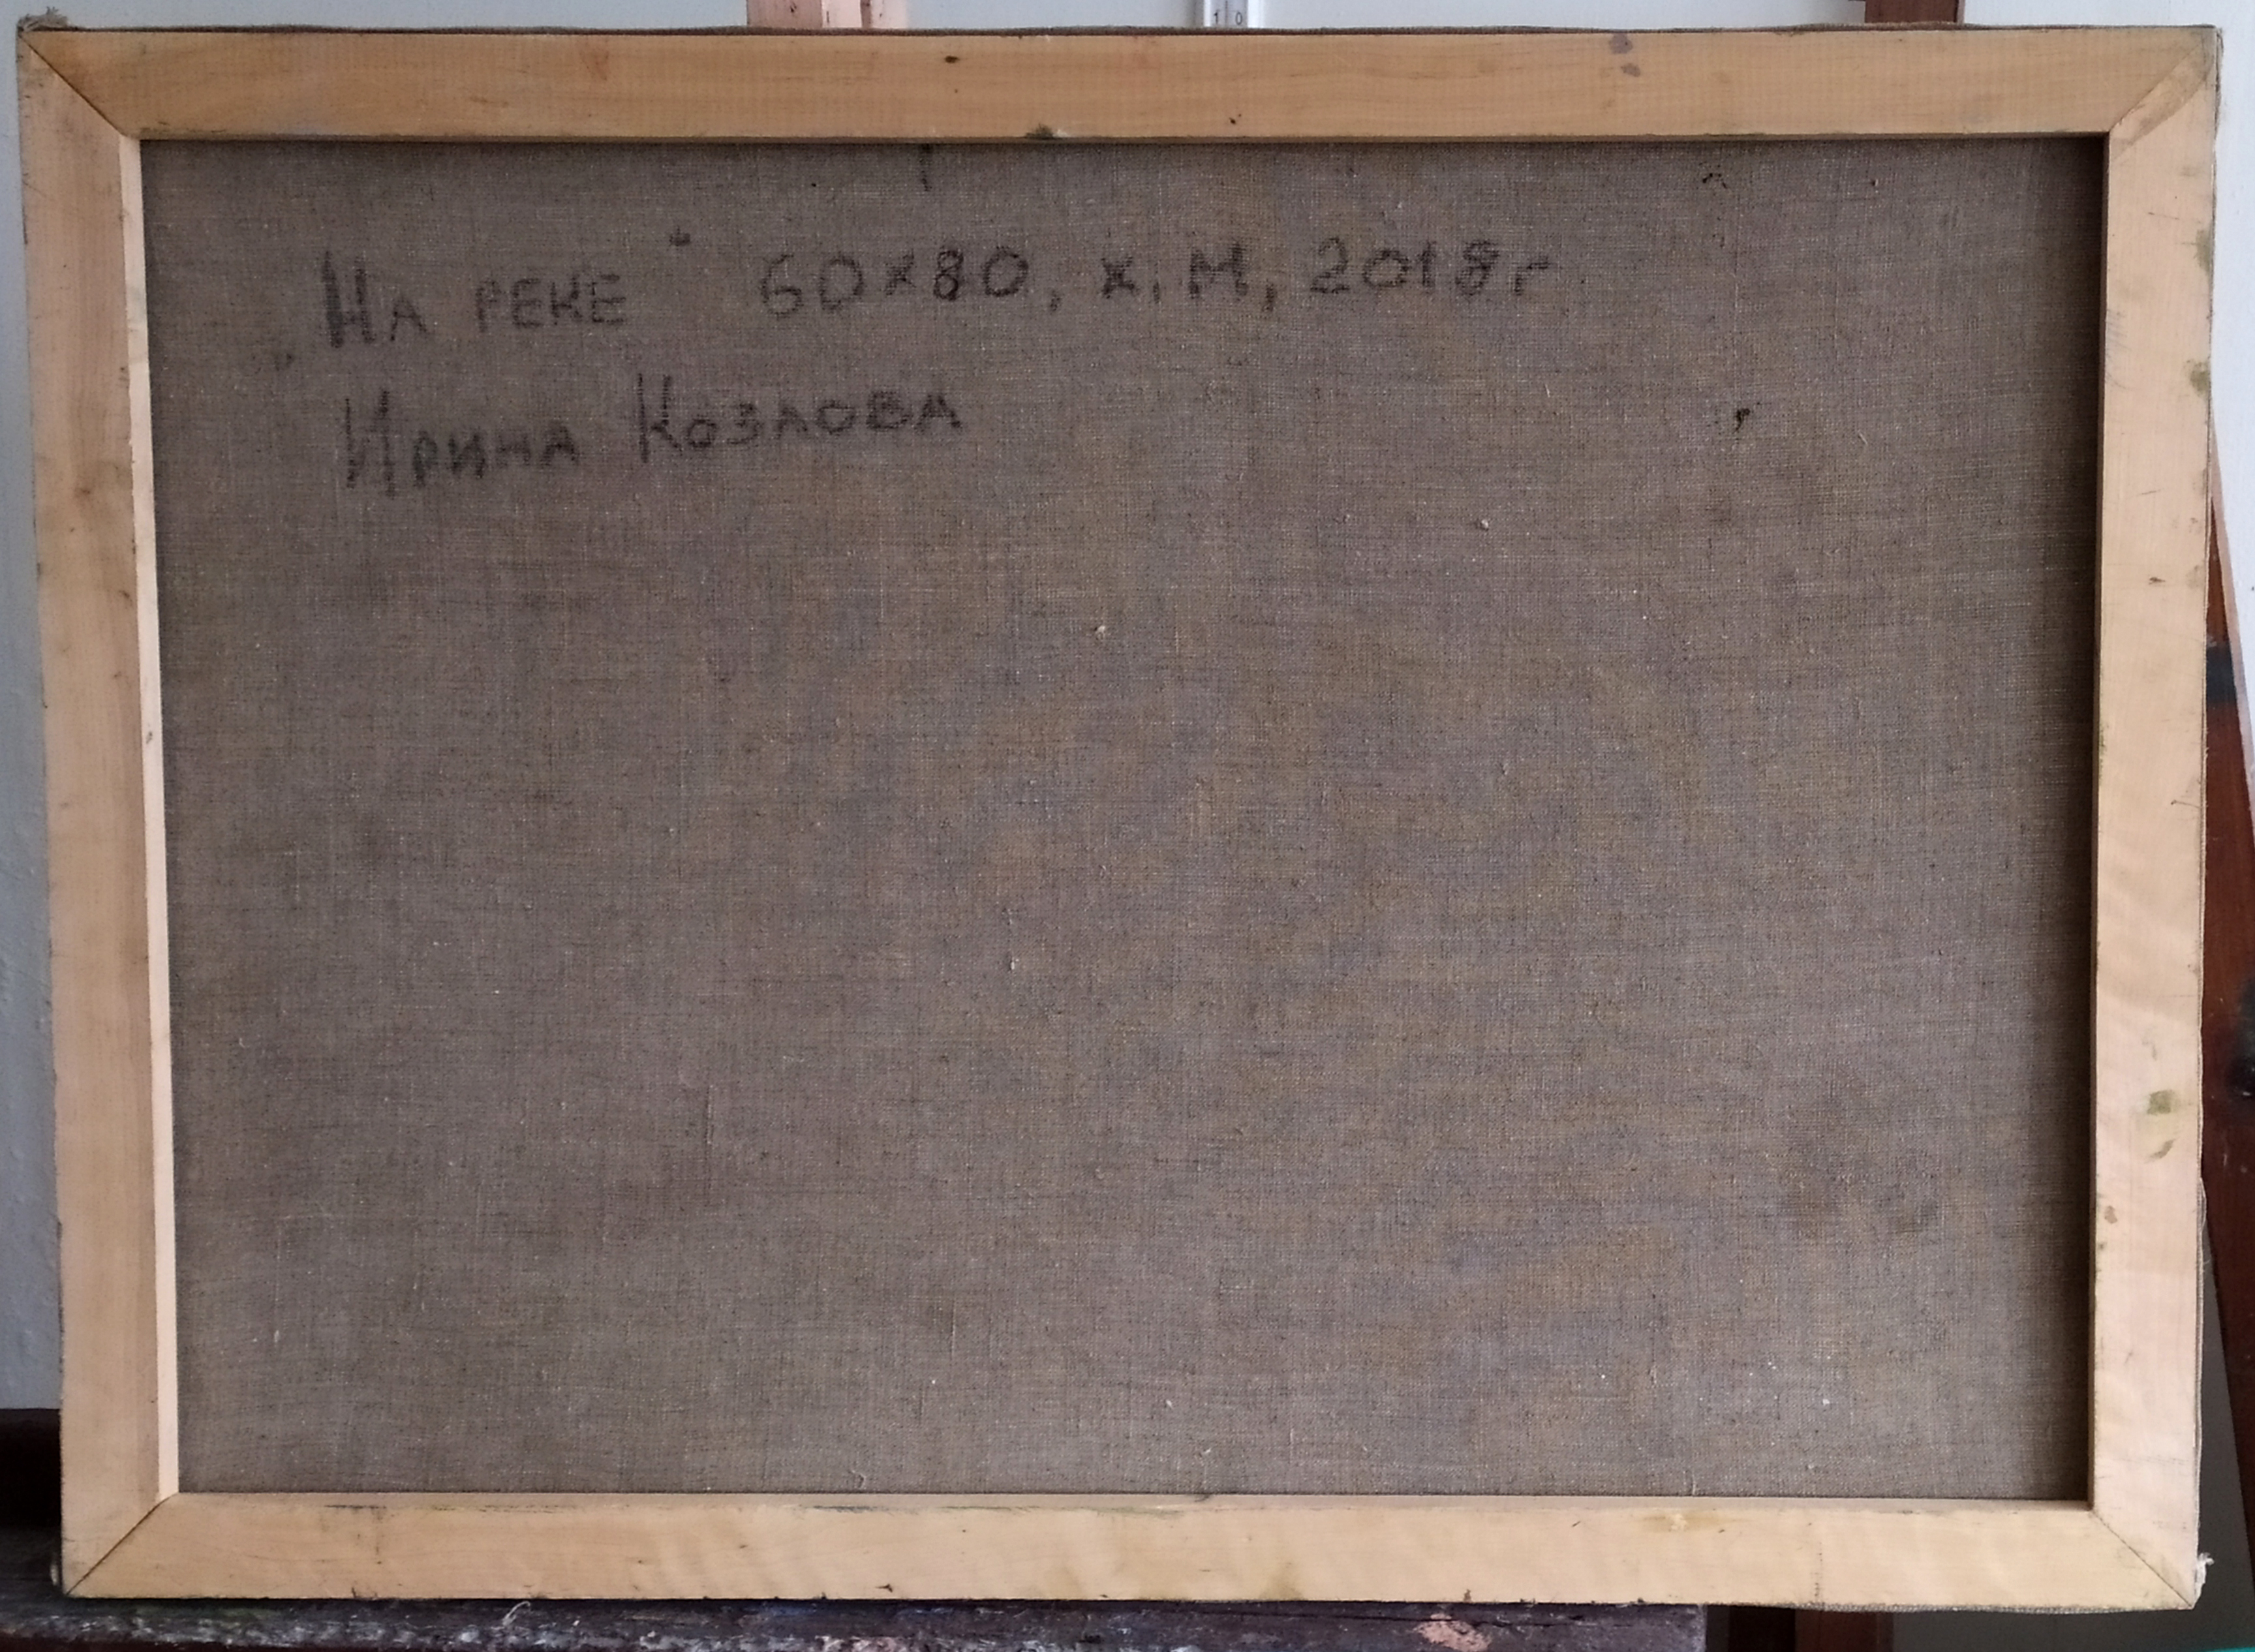 „На реке“ 60х80, х.м, 2018г
Ирина Козлова